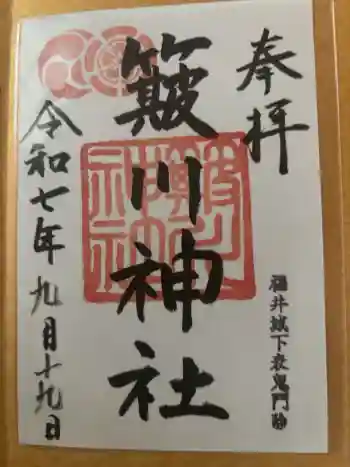 奉拝
福井城下表鬼門
簸川神社
令和七年九月十九日